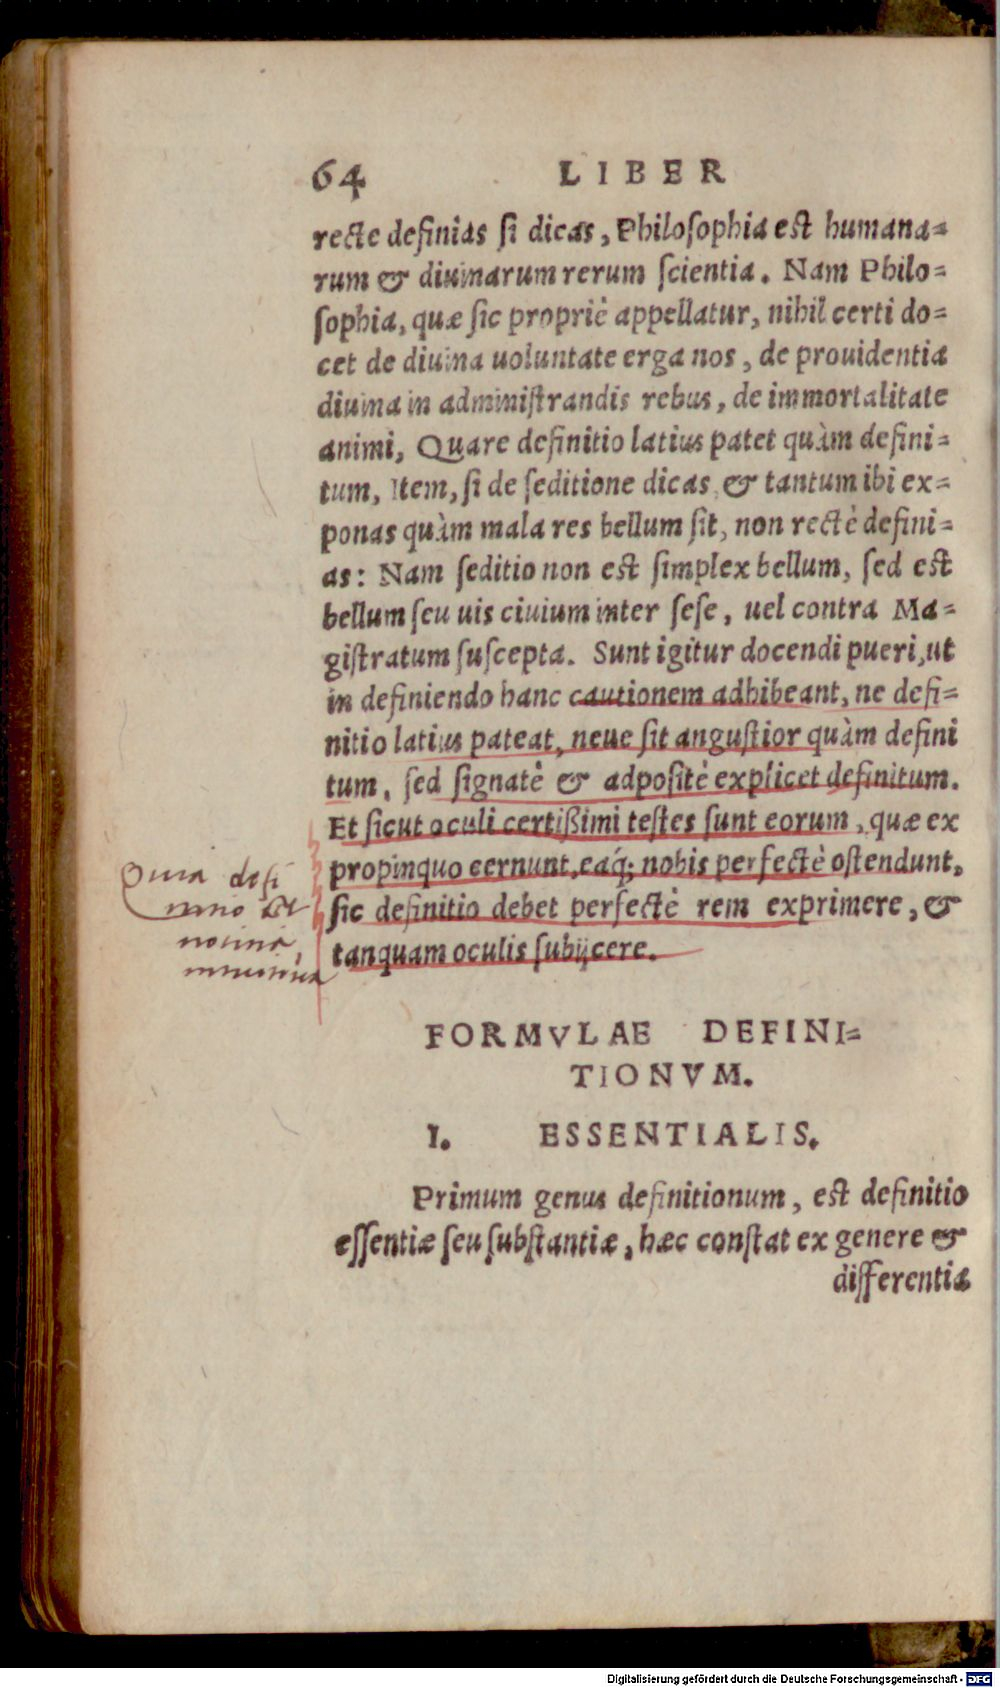 64 LIBER
recte definias si dicas, Philosophia est humana=
rum & diuinarum rerum scientia. Nam Philo=
sophia, quæ sic propriè appellatur, nihil certi do=
cet de diuina uoluntate erga nos, de prouidentia
diuina in administrandis rebus, de immortalitate
animi, Quare definitio latius patet quàm defini=
tum, Item, si de seditione dicas, & tantum ibi ex=
ponas quàm mala res bellum sit, non rectè defini=
as: Nam seditio non est simplex bellum, sed est
bellum seu uis ciuium inter sese, uel contra Ma=
gistratum suscepta. Sunt igitur docendi pueri, ut
in definiendo hanc cautionem adhibeant, ne defi=
nitio latius pateat, neue sit angustior quàm defini
tum, sed signatè & adpositè explicet definitum.
Et sicut oculi certißimi testes sunt eorum, quæ ex
propinquo cernunt, eaq́; nobis perfectè ostendunt,
sic definitio debet perfectè rem exprimere, &
tanquam oculis subijcere.
Quia defi
nitio est
notitia
intuitiua
FORMVLAE DEFINI=
TIONVM.
I. ESSENTIALIS.
Primum genus definitionum, est definitio
essentiæ seu substantiæ, hæc constat ex genere &
differentia
Digitalisierung gefördert durch die Deutsche Forschungsgemeinschaft - DFG